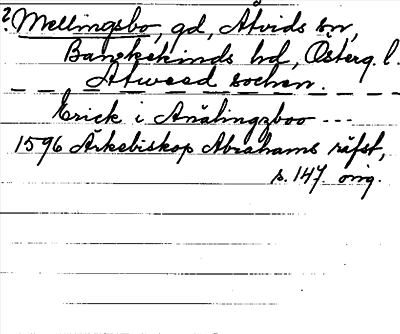 ? Mellingsbo, gd, Åtvids sn,
Bankekinds hd, Österg. l.
Atweed sochen.
Erick i Anälingzboo ---
1596 Ärkebiskop Abrahams räfst,
s. 147. orig.